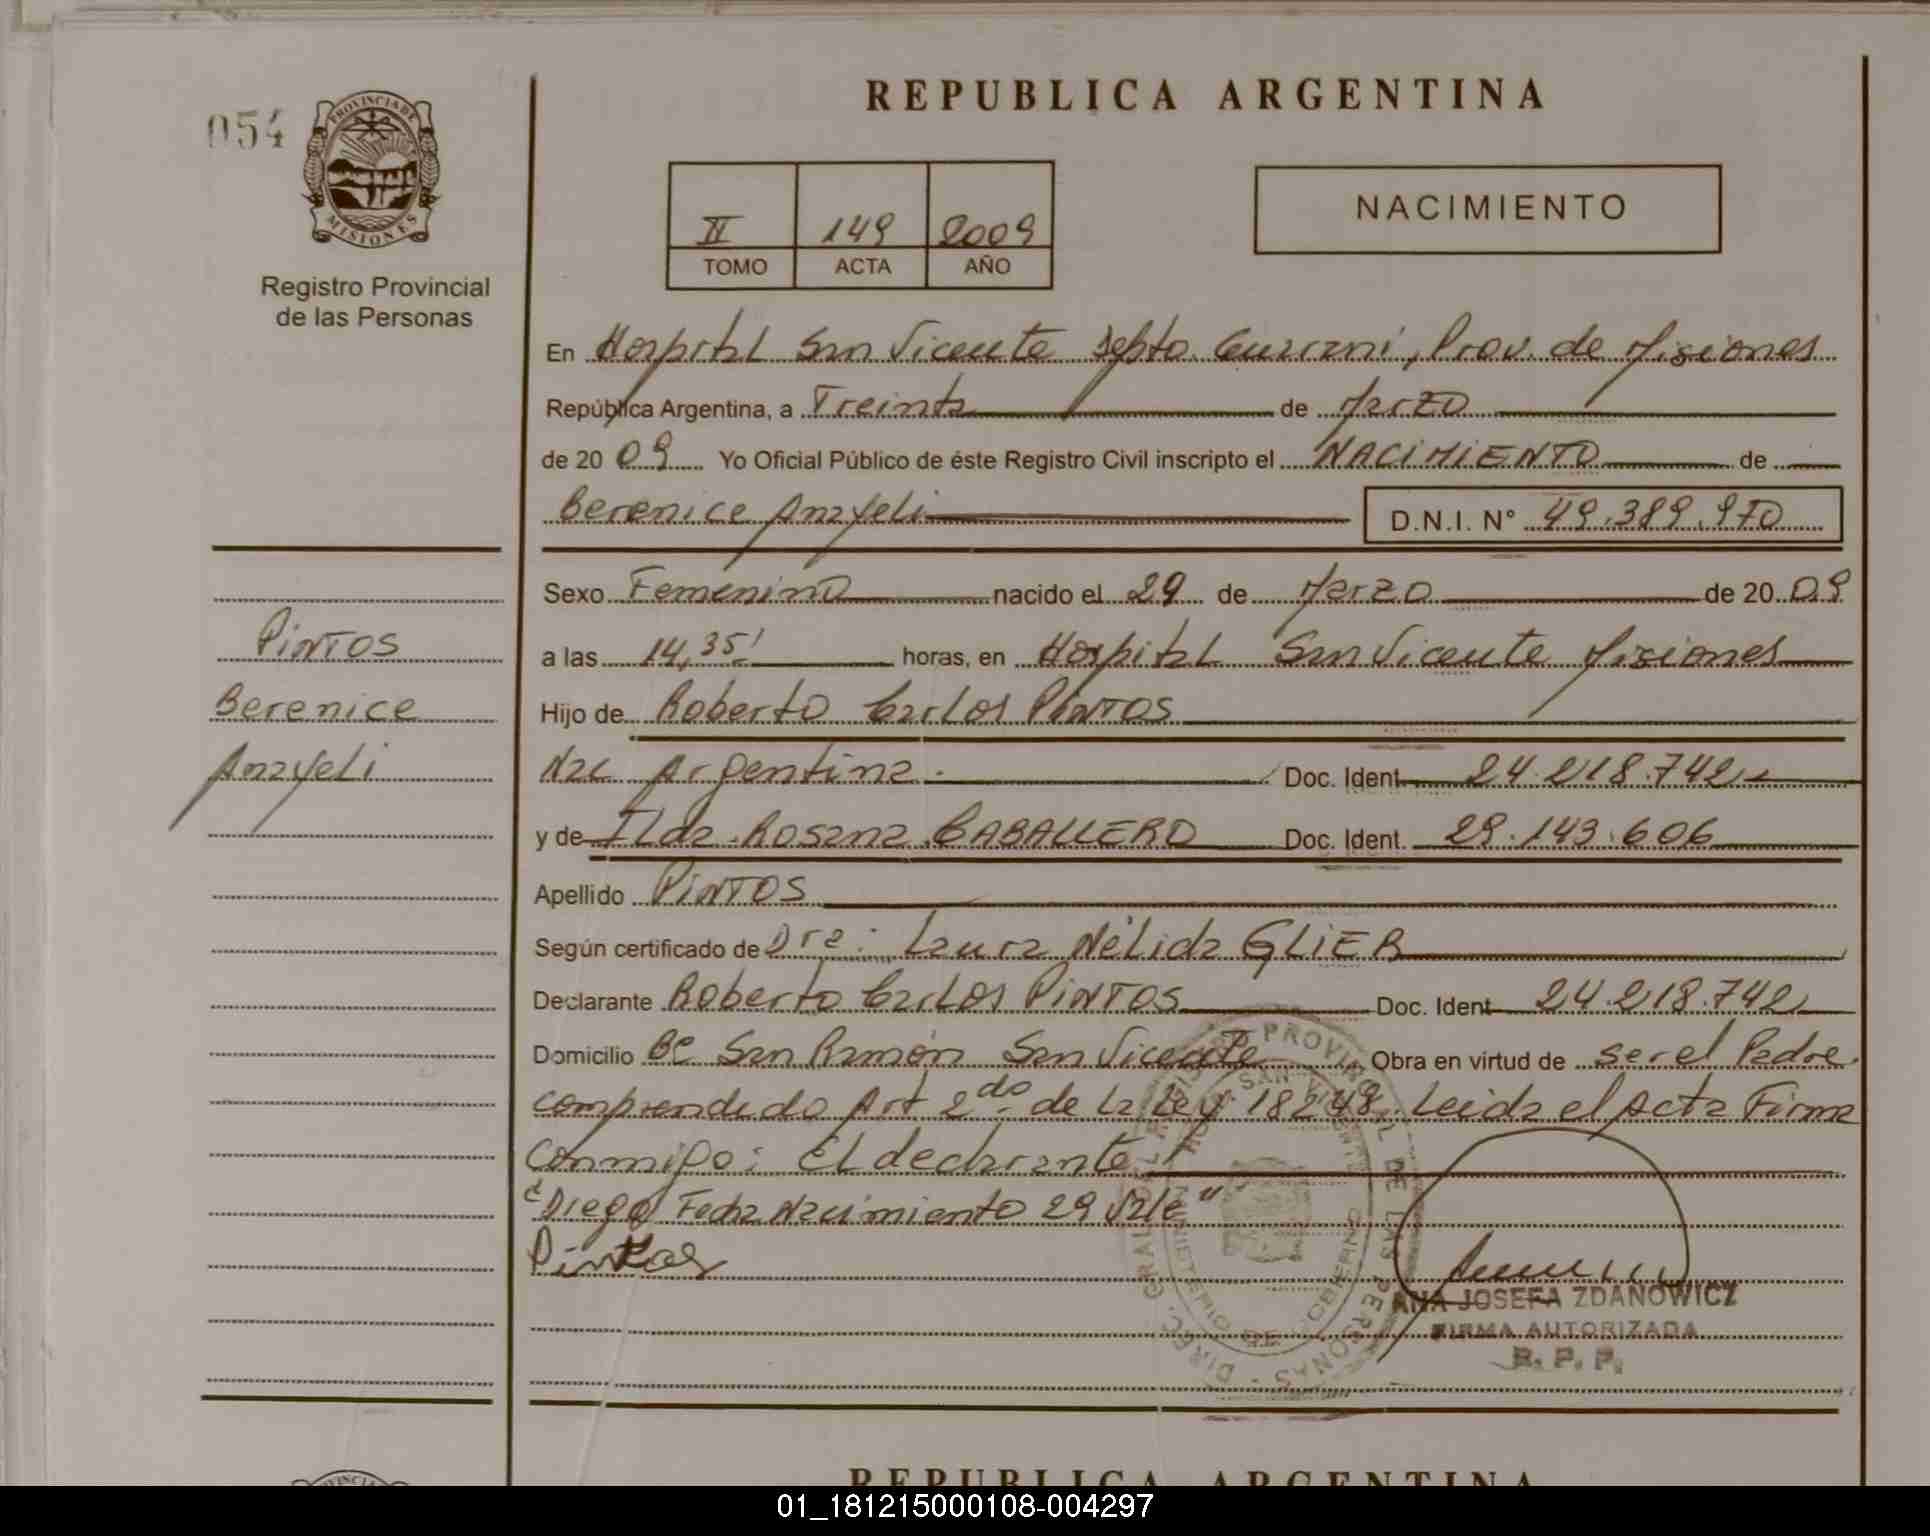 REPUBLICA ARGENTINA
054
PROVINCIA DE
MISIONES
Registro Provincial
de las Personas
II 149 2009
TOMO ACTA AÑO
NACIMIENTO
En Hospital San Vicente Depto. Guarani, Prov. de Misiones
República Argentina, a Treinta de Marzo
de 20 09 Yo Oficial Público de éste Registro Civil inscripto el NACIMIENTO de
Berenice Anayeli D.N.I. N° 49.389.970
Sexo Femenino nacido el 29 de Marzo de 20 09
a las 14,35' horas, en Hospital San Vicente Misiones
Hijo de Roberto Carlos PINTOS
Nac Argentina. Doc. Ident 24.218.742
y de Ilda Rosana CABALLERO Doc. Ident. 29.143.606
Apellido PINTOS
Según certificado de Dra: Laura Nélida GLIER
Declarante Roberto Carlos PINTOS Doc. Ident 24.218.742
Domicilio Bº San Ramón San Vicente Obra en virtud de ser el Padre
comprendido Art 2do. de la Ley 18248. Leida el Acta Firma
Conmigo: El declarante
Fecha Nacimiento 29 Vale"
Pintos
PINTOS
Berenice
Anayeli
ANA JOSEFA ZDANOWICZ
FIRMA AUTORIZADA
R. P. P.
REPUBLICA ARGENTINA
01_181215000108-004297